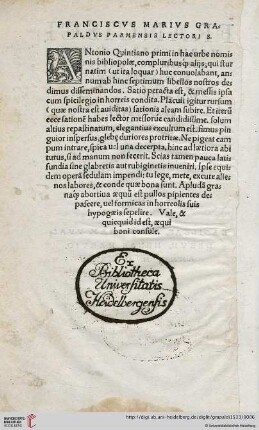 FRANCISCVS MARIVS GRA,
PALDVS PARMENSIS LECTORI S.
ANtonio Quintiano primi in hac urbe nomi
nis bibliopolæ, compluribusq; alijs, qui stur
natim (ut ita loquar) huc conuolabant, an/
numub hinc septimum libellos nostros de/
dimus disseminandos. Satio peracta est, & messis ipsa
cum spicilegio in horreis condita. Placuit igitur rursum
habes lector messorue candidissime. solum
altius repastinatum, elegantius excultum est, simus pin
guior inspersus, glebę duriores protritæ. Ne pigeat cam
pum intrare, spica uel una decerpta, hinc ad lætiora abi
turus, si ad manum non fecerit. Scias tamen pauca latis
fundia sine glabretis aut rubiginetis inueniri. Ipse equi
dem opera sedulam impendi: tu lege, mete, excute alie
nos labores, & conde quæ bona sunt. Apludā gra
pascere, uel formicas in horreolis suis
hypogæis sepelire. Vale, &
quicquid id est, æqui
boni consule.
Ex
Bibliotheca
Universitatis
Heidelbergensis
UNIVERSITÄTS-
BIBLIOTHEK
HEIDELBERG
http://digi.ub.uni-heidelberg.de/diglit/
© Universitätsbibliothek Heidelberg